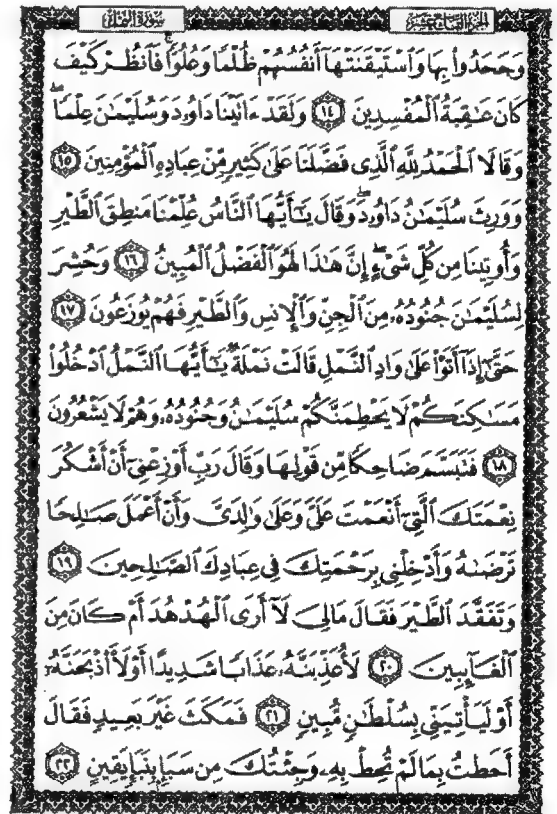 الجزء التاسع عشر
سورة النمل
وَجَحَدُوا۟ بِهَا وَٱسْتَيْقَنَتْهَآ أَنفُسُهُمْ ظُلْمًا وَعُلُوًّا فَٱنظُرْ كَيْفَ
كَانَ عَٰقِبَةُ ٱلْمُفْسِدِينَ ١٤ وَلَقَدْ ءَاتَيْنَا دَاوُۥدَ وَسُلَيْمَٰنَ عِلْمًا
وَقَالَا ٱلْحَمْدُ لِلَّهِ ٱلَّذِى فَضَّلَنَا عَلَىٰ كَثِيرٍ مِّنْ عِبَادِهِ ٱلْمُؤْمِنِينَ ١٥
وَوَرِثَ سُلَيْمَٰنُ دَاوُۥدَ وَقَالَ يَٰٓأَيُّهَا ٱلنَّاسُ عُلِّمْنَا مَنطِقَ ٱلطَّيْرِ
وَأُوتِينَا مِن كُلِّ شَىْءٍ إِنَّ هَٰذَا لَهُوَ ٱلْفَضْلُ ٱلْمُبِينُ ١٦ وَحُشِرَ
لِسُلَيْمَٰنَ جُنُودُهُۥ مِنَ ٱلْجِنِّ وَٱلْإِنسِ وَٱلطَّيْرِ فَهُمْ يُوزَعُونَ ١٧
حَتَّىٰٓ إِذَآ أَتَوْا۟ عَلَىٰ وَادِ ٱلنَّمْلِ قَالَتْ نَمْلَةٌ يَٰٓأَيُّهَا ٱلنَّمْلُ ٱدْخُلُوا۟
مَسَٰكِنَكُمْ لَا يَحْطِمَنَّكُمْ سُلَيْمَٰنُ وَجُنُودُهُۥ وَهُمْ لَا يَشْعُرُونَ
١٨ فَتَبَسَّمَ ضَاحِكًا مِّن قَوْلِهَا وَقَالَ رَبِّ أَوْزِعْنِىٓ أَنْ أَشْكُرَ
نِعْمَتَكَ ٱلَّتِىٓ أَنْعَمْتَ عَلَىَّ وَعَلَىٰ وَٰلِدَىَّ وَأَنْ أَعْمَلَ صَٰلِحًا
تَرْضَىٰهُ وَأَدْخِلْنِى بِرَحْمَتِكَ فِى عِبَادِكَ ٱلصَّٰلِحِينَ ١٩
وَتَفَقَّدَ ٱلطَّيْرَ فَقَالَ مَالِىَ لَآ أَرَى ٱلْهُدْهُدَ أَمْ كَانَ مِنَ
ٱلْغَآئِبِينَ ٢٠ لَأُعَذِّبَنَّهُۥ عَذَابًا شَدِيدًا أَوْ لَأَا۟ذْبَحَنَّهُۥٓ
أَوْ لَيَأْتِيَنِّى بِسُلْطَٰنٍ مُّبِينٍ ٢١ فَمَكَثَ غَيْرَ بَعِيدٍ فَقَالَ
أَحَطتُ بِمَا لَمْ تُحِطْ بِهِۦ وَجِئْتُكَ مِن سَبَإٍۭ بِنَبَإٍ يَقِينٍ ٢٢